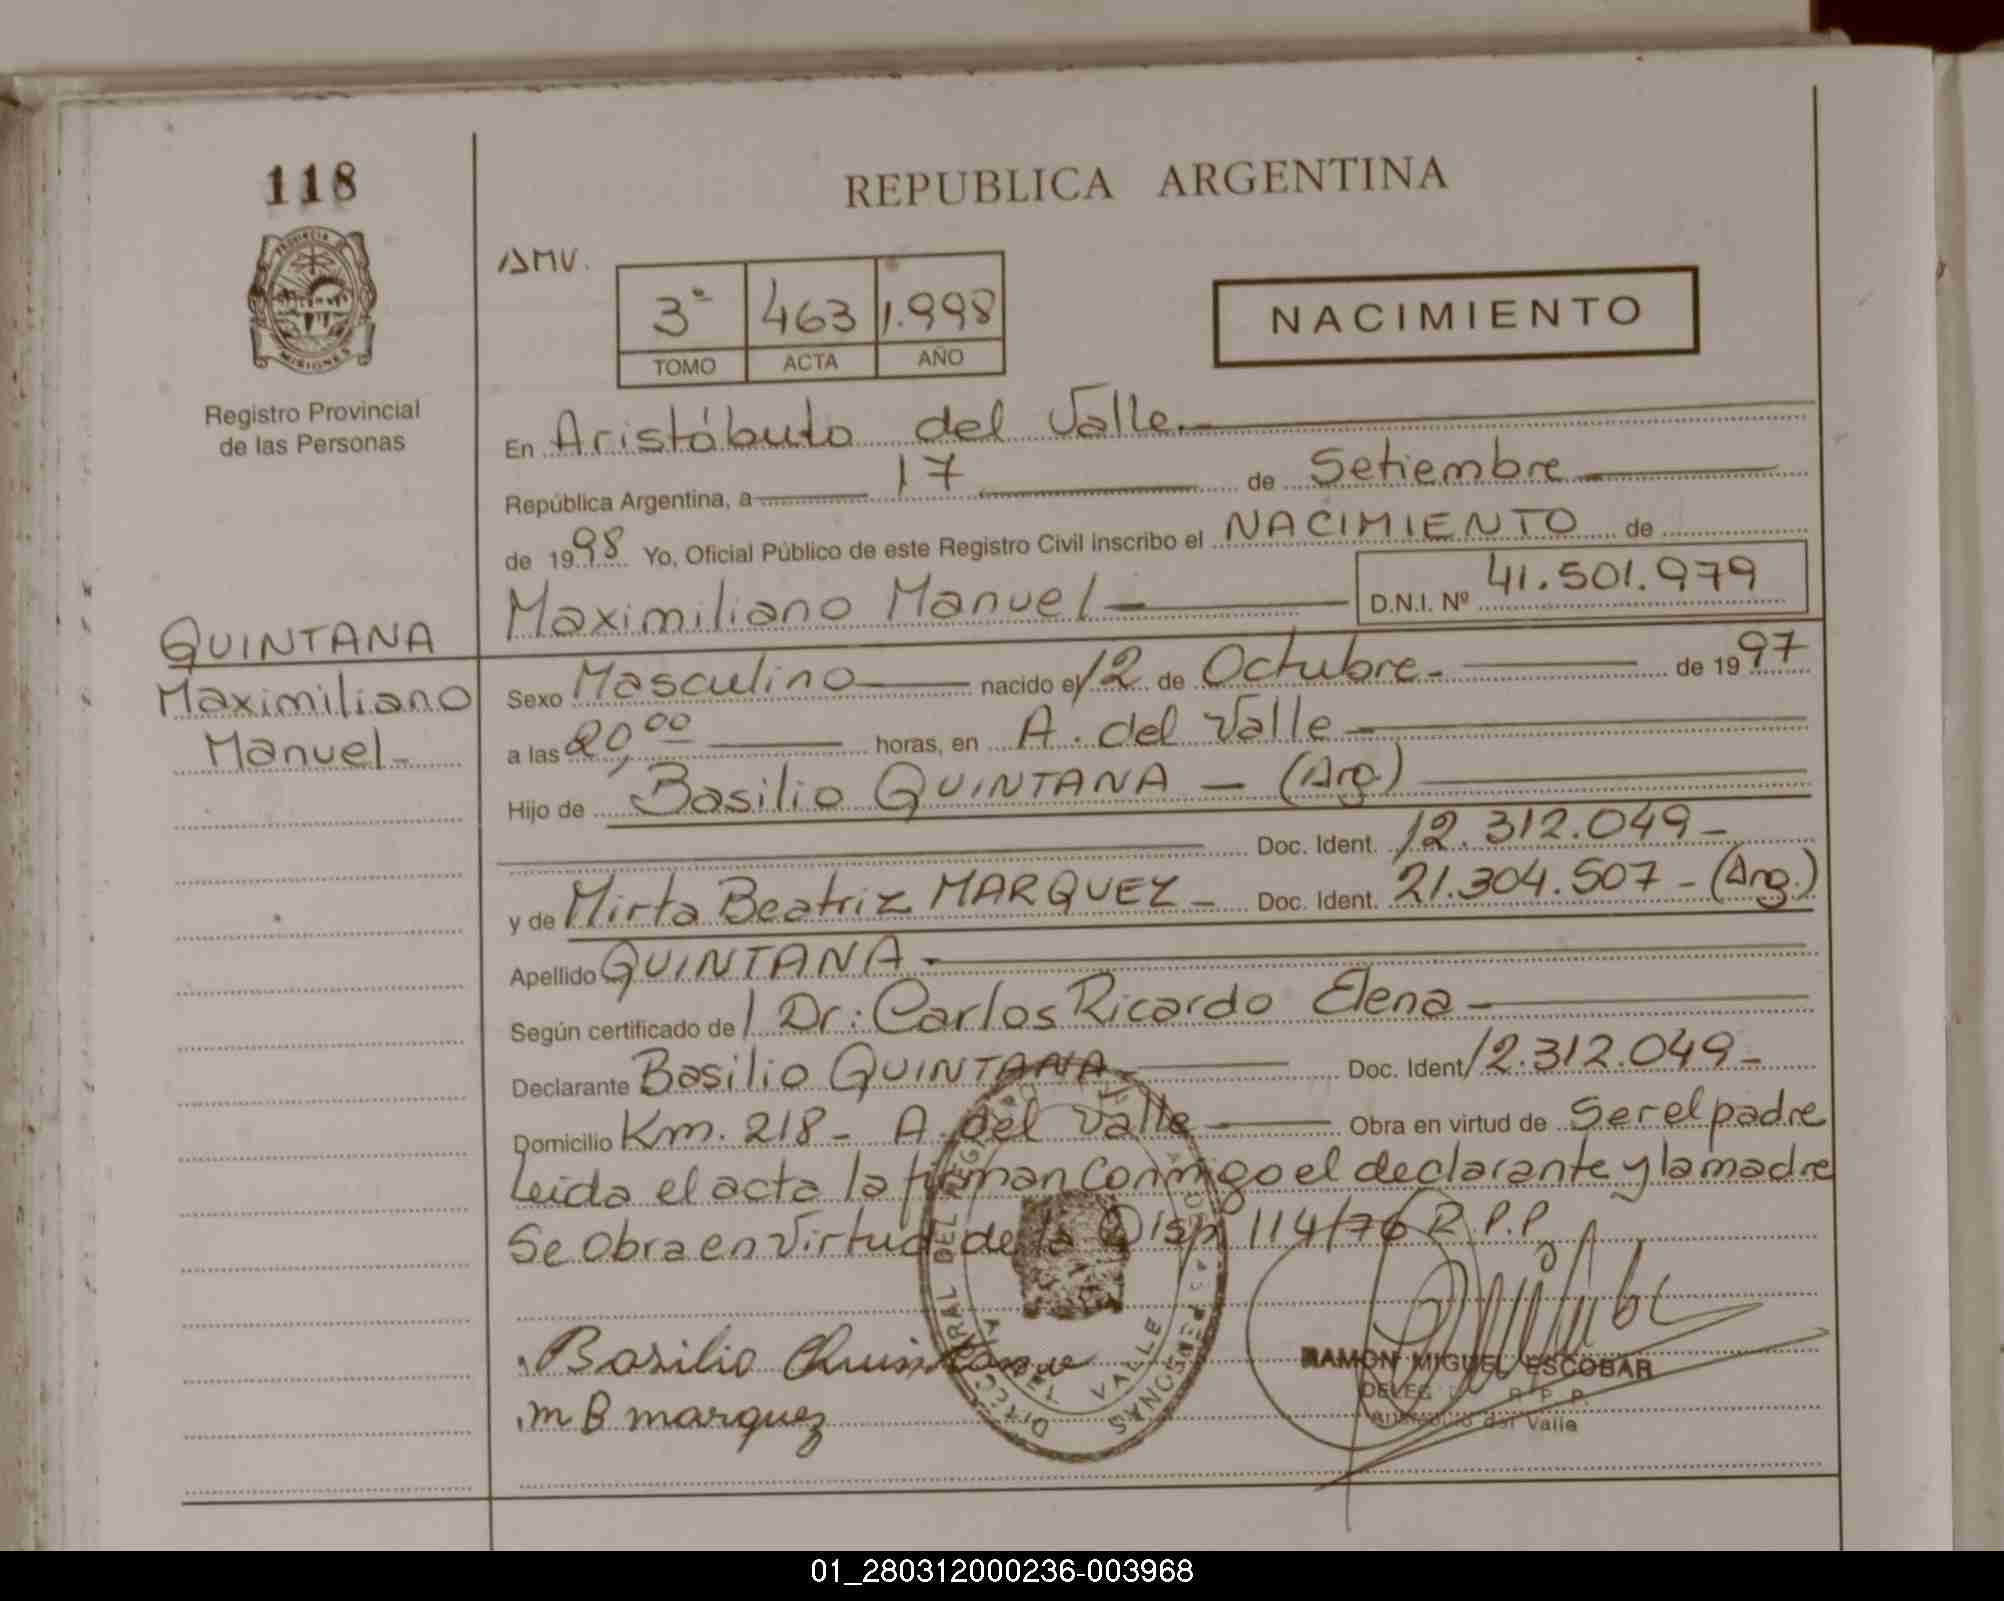 118
REPUBLICA ARGENTINA
PROVINCIA DE
MISIONES
Registro Provincial
de las Personas
AMV.
3º 463 1.998
TOMO ACTA AÑO
NACIMIENTO
En Aristóbulo del Valle.
República Argentina, a 17 de Setiembre
de 1998 Yo, Oficial Público de este Registro Civil inscribo el NACIMIENTO de
Maximiliano Manuel D.N.I. Nº 41.501.979
QUINTANA
Maximiliano
Manuel-
Sexo Masculino nacido el 12 de Octubre.- de 1997
a las 20,00 horas, en A. del Valle
Hijo de Basilio QUINTANA - (Arg.)
Doc. Ident. 12.312.049-
y de Mirta Beatriz MARQUEZ- Doc. Ident. 21.304.507-(Arg.)
Apellido QUINTANA
Según certificado de Dr: Carlos Ricardo Elena
Declarante Basilio QUINTANA- Doc. Ident 12.312.049-
Domicilio Km. 218- A. del Valle Obra en virtud de Ser el padre
Leida el acta la firman conmigo el declarante y la madre
Se obra en virtud de la Disp 114/76 R.P.P.
Basilio Quintana
m B marquez
RAMON MIGUEL ESCOBAR
DELEG R. P. P.
del Valle
VALLE
01_280312000236-003968